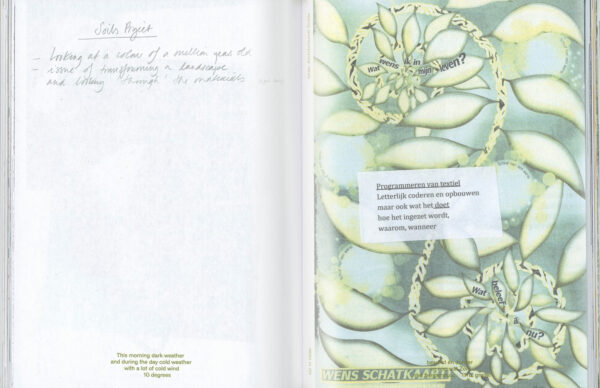 Soils Project
- Looking at a color of a million year old
- some of transforming a landscape
and looking through the materials
This morning dark weather
and during the day cold weather
with a lot of cold wind
10 degrees
Wat wens ik in mijn leven?
Programmeren van textiel
Letterlijk coderen en opbouwen
maar ook wat het doet
hoe het ingezet wordt,
waarom, wanneer
Wat beleef ik nu?
WENS SCHATKAART